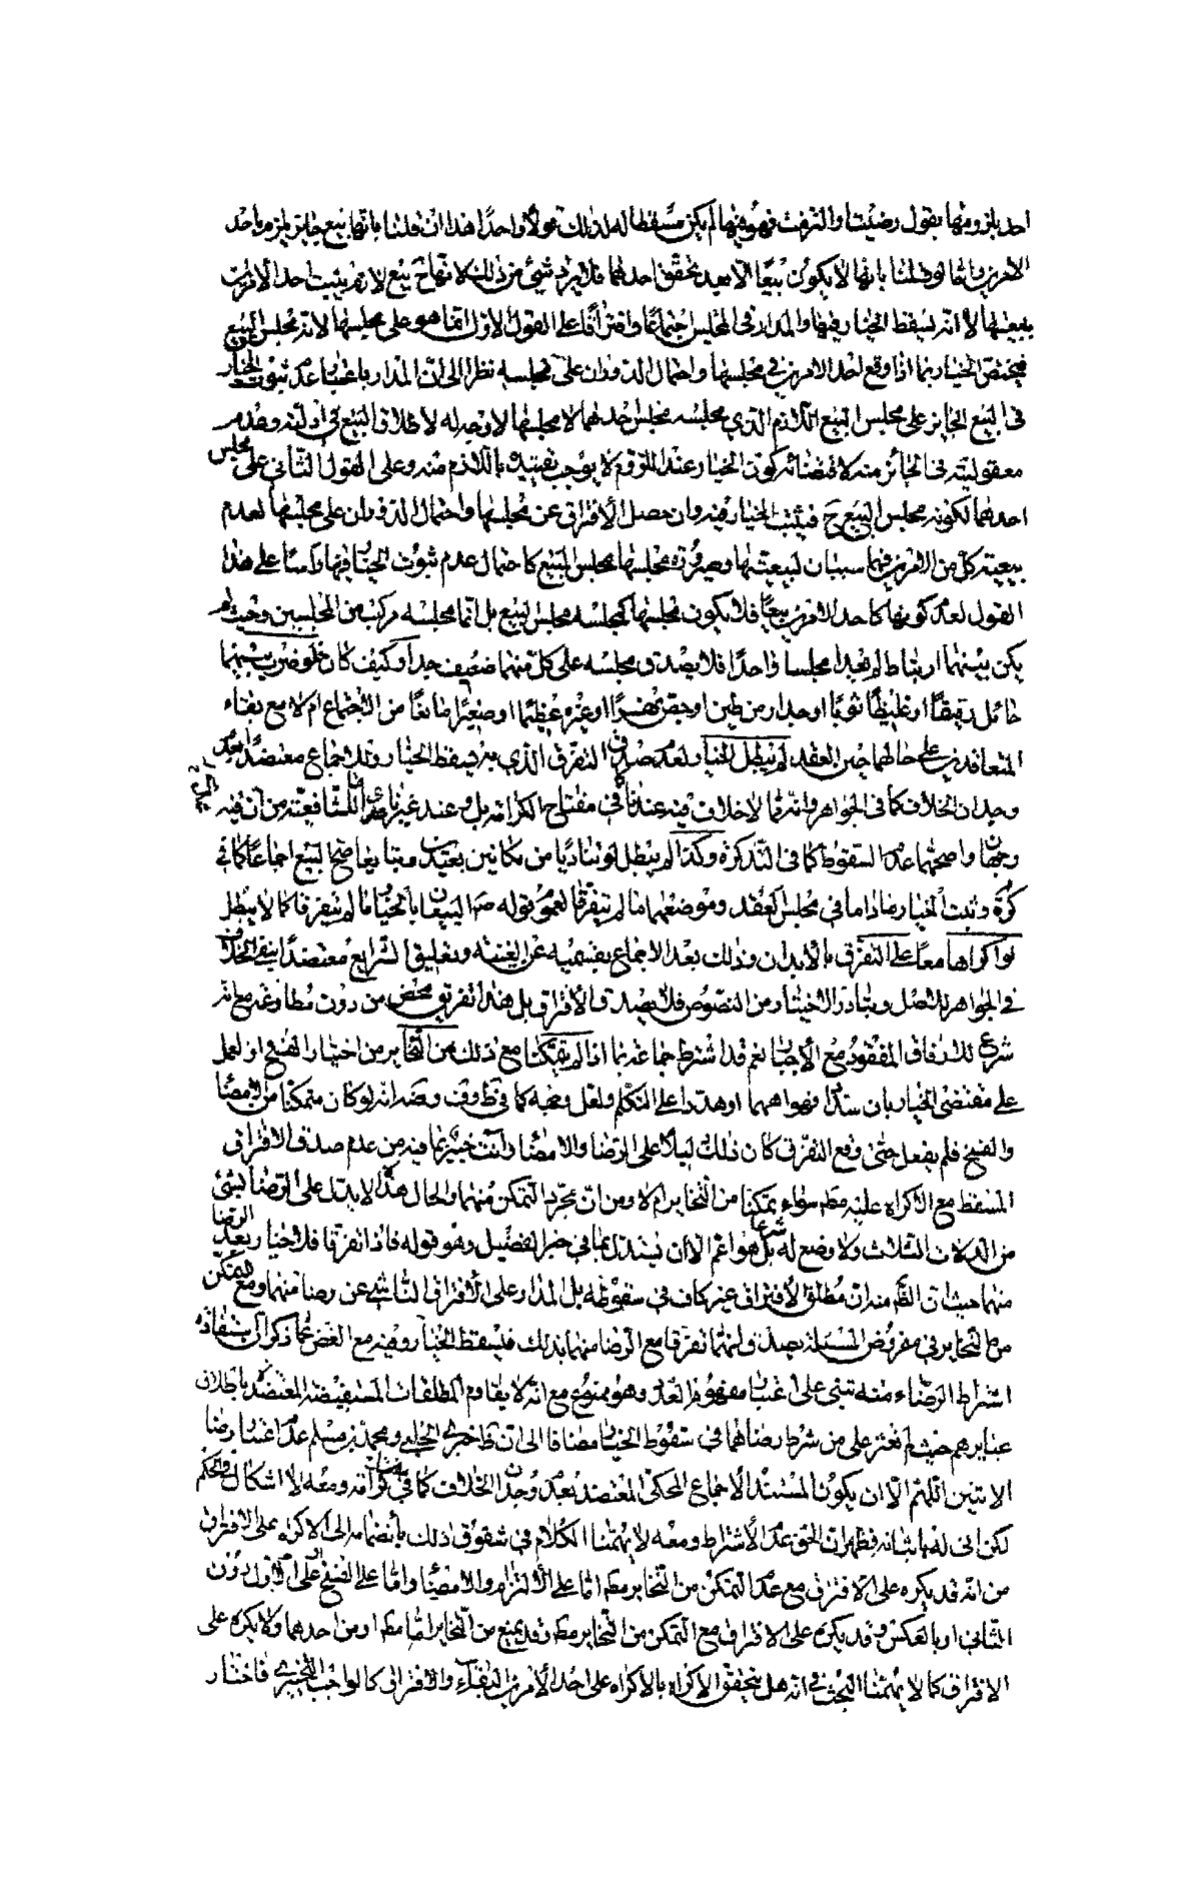 احد يلزومها بقول رضيت او التزمت فهو فيها لم يكن مسقطا له لذلك قولا واحدا هذا ان قلنا بانها بيع جايز يلزم باحد
الامرين واما لو قلنا بانها لا يكون بيعا الا بعد تحقق احدهما فلا يرد شيئ من ذلك لانها ح بيع لازم يثبت احد الامرين
بيعيتها لا انه يسقط الخيار فيها والمدار في المجلس اجتماعا وافتراقا على القول الاول انما هو على مجلسها لانه مجلس البيع
فيختص الخيار بما اذا وقع احد الامرين في مجلسها واحتمال الدوران على مجلسه نظرا الى ان المدار باعتبار عدم ثبوت الخيار
في البيع الجايز على مجلس البيع اللازم الذي مجلسه مجلس احدهما لا مجلسها لا وجه له لاطلاق البيع في ادلته وعدم
معقوليته في الجائز منه لاقتضائه كون الخيار عند اللزوم لا يوجب تقييده باللازم منه وعلى القول الثاني على مجلس
احدهما لكونه مجلس البيع ح فيثبت الخيار فيه وان حصل الافتراق عن مجلسها واحتمال الدوران على مجلسها لعدم
بيعية كل من الامرين فهما سببان لبيعيتها وصيرورة مجلسها مجلس البيع كاحتمال عدم ثبوت الخيار فيها راسا على هذا
القول لعدم كونها كاحد الامرين بيعا فلا يكون مجلسها كمجلسه مجلس البيع بل انما مجلسه مركب من المجلسين وحيث لم
يكن بينهما ارتباط لم يعدا مجلسا واحدا فلا يصدق ومجلسه على كل منهما ضعيف جدا وكيف كان فلو ضرب بينهما
حائل رقيقا او غليظا ثوبا او جدار من طين او جص او غيره عظيما او صغيرا مانعا من الاجتماع ام لا مع بقاء
المتعاقدين على حالهما حين العقد لم يبطل الخيار لعدم صدق التفرق الذي به يسقط الخيار وللاجماع معتضدا بعدم
وجدان الخلاف كما في الجواهر وانه مما لا خلاف فيه عندنا كما في مفتاح الكرامة بل وعند غيرنا عدا ما للشافعية من ان فيه
وجهان واصحهما عدم السقوط كما في التذكرة وكذا لم يبطل لو تناديا من مكانين بعيدين وتبايعا صح البيع اجماعا كما في
كرة وثبت الخيار ما داما في مجلس العقد وموضعهما ما لم يتفرقا لعموم قوله ص البيعان بالخيار ما لم يتفرقا كما لا يبطل
لو اكرها معا على التفرق بالابدان وذلك بعد الاجماع بقسميه عن الغنية وتعليق الشرايع معتضدا بنفي الخلاف
في الجواهر للاصل وتبادر الاختيار من النصوص فلا يصدق الافتراق بل هذا تفريق محض من دون مطاوعة مع انه
شرع للارفاق المفقود مع الاجبار نعم قد اشترط جماعة بما اذا لم يتمكنا مع ذلك من التخاير من اختيار الفسخ او العمل
على مقتضى الخيار بان سدا فواههما او هددا على التكلم ولعل وجهه كما في ظ وف وضه انه لو كان متمكنا من الامضاء
والفسخ فلم يفعل حتى وقع التفرق كان ذلك دليلا على الرضا والامضاء وانت خبير بما فيه من عدم صدق الافتراق
المسقط مع الاكراه عليه مطه سواء تمكنا من التخاير ام لا ومن ان مجرد التمكن منهما والحال هذه لا يدل على الرضا بشيئ
من الدلالات الثلاث ولا وضع له شرعا بل هو اعم الا ان يستدل بما في خبر الفضيل وهو قوله فاذا تفرقا فلا خيار بعد الرضا
منهما حيث ان الظ منه ان مطلق الافتراق غير كاف في سقوطه بل المدار على الافتراق الناشي عن رضا منهما ومع التمكن
من التخاير في مفروض المسئلة يصدق انهما تفرقا مع الرضا منهما بذلك فيسقط الخيار وفيه مع الغض عما ذكر ان استفادة
اشتراط الرضاء منه تبتني على اعتبار مفهوم العدد وهو ممنوع مع انه لا يقاوم المطلقات المستفيضة المعتضدة باطلاق
عبايرهم حيث لم نعثر على من شرط رضاهما في سقوط الخيار مضافا الى ان ظ خبري الحلبي ومحمد بن مسلم عدم اعتبار رضا
الاثنين اللهم الا ان يكون المستند الاجماع المحكي المعتضد بعدم وجدان الخلاف كما في مفتاح الكرامة ومعه لا اشكال في الحكم
لكن انى له باثباته فظهر ان الحق عدم الاشتراط ومعه لا يهمنا الكلام في شقوق ذلك بانضمامه الى الاكراه على الافتراق
من انه قد يكره على الافتراق مع عدم التمكن من التخاير مطه اما على الالتزام والامضاء واما على الفسخ او على الاول دون
الثاني او بالعكس وقد يكره على الافتراق مع التمكن من التخاير مطه وقد يمنع من التخاير اما مطه او من احدهما ولا يكره على
الافتراق كما لا يهمنا البحث في انه هل يتحقق الاكراه بالاكراه على احد الامرين البقاء والافتراق كالواجب التخييري فاختار